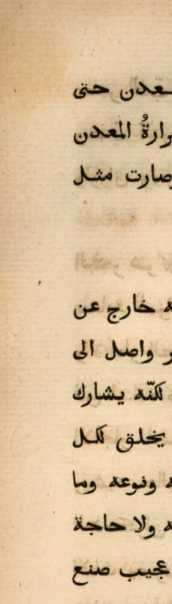 ـعدن حتى
رارةُ المعدن
صارت مثل
خارج عن
واصل الى
لكنّه يشارك
يخلق لكل
ونوعه وما
ولا حاجة
عجيب صنع